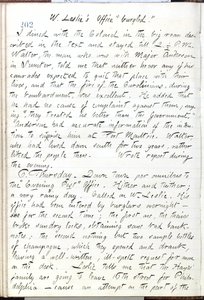 202
W. Leslie's Office Burgled.
I dined with the Colonel in the big room des-
cribed in the text and stayed till
Walter, the man who was with Major Anderson
in Sumter, told me that neither he nor any of his
comrades expected to quit that place with their
lives, and that the fire of the Carolinians, during
the bombardment was excellent. He added that
he had no cause of complaint against them, say-
ing they treated him better than the government.
Anderson had accurate information of the inten-
tion to expel him at Fort Moultrie. Walter
who had lived South for two years, rather
liked the people there. Wrote report during
the evening.
Thursday. Down town per omnibus to
the Evening Post Office. Hither and thither;
a very rainy day. Called in at Leslie's. His
office had been entered by burglars over-night
for the second time; the first one, the thieves
broke sundry locks, obtaining some bad bank
notes; the second nothing but two sample bottles
of champagne, which they opened and drank,
leaving a well-written, ill-spelt request for more
on the desk. Leslie told me that the
family are going to leave 16th Street for Phila-
delphia. Louisa an attempt on the part of the